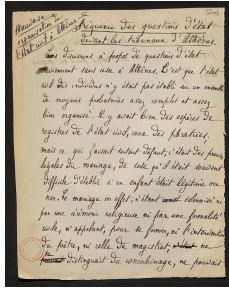 Mauvaise
organisation de
l'état civil à Athènes
Fréquence des questions d'état
devant les tribunaux d'Athènes.
Les discussions à propos de questions d'état
sans cesse à Athènes. C'est que l'état
civil des individus n'y était pas établi par un ensemble
de moyens probatoires assez complet et assez
bien organisé. Il y avait bien des espèces de
registres de l'état civil, ceux des phratries.
mais ce qui faisait surtout défaut, c'était des preuves
légales du mariage, de sorte qu'il était souvent
difficile d'établir si un enfant était légitime ou
non. Le mariage en effet, n'étant solennisé ni
par une cérémonie religieuse ni par une formalité
civile, n'appelant, pour se former, ni l'intervention
du prêtre, ni celle du magistrat, ne
distinguait du concubinage, ne pouvait